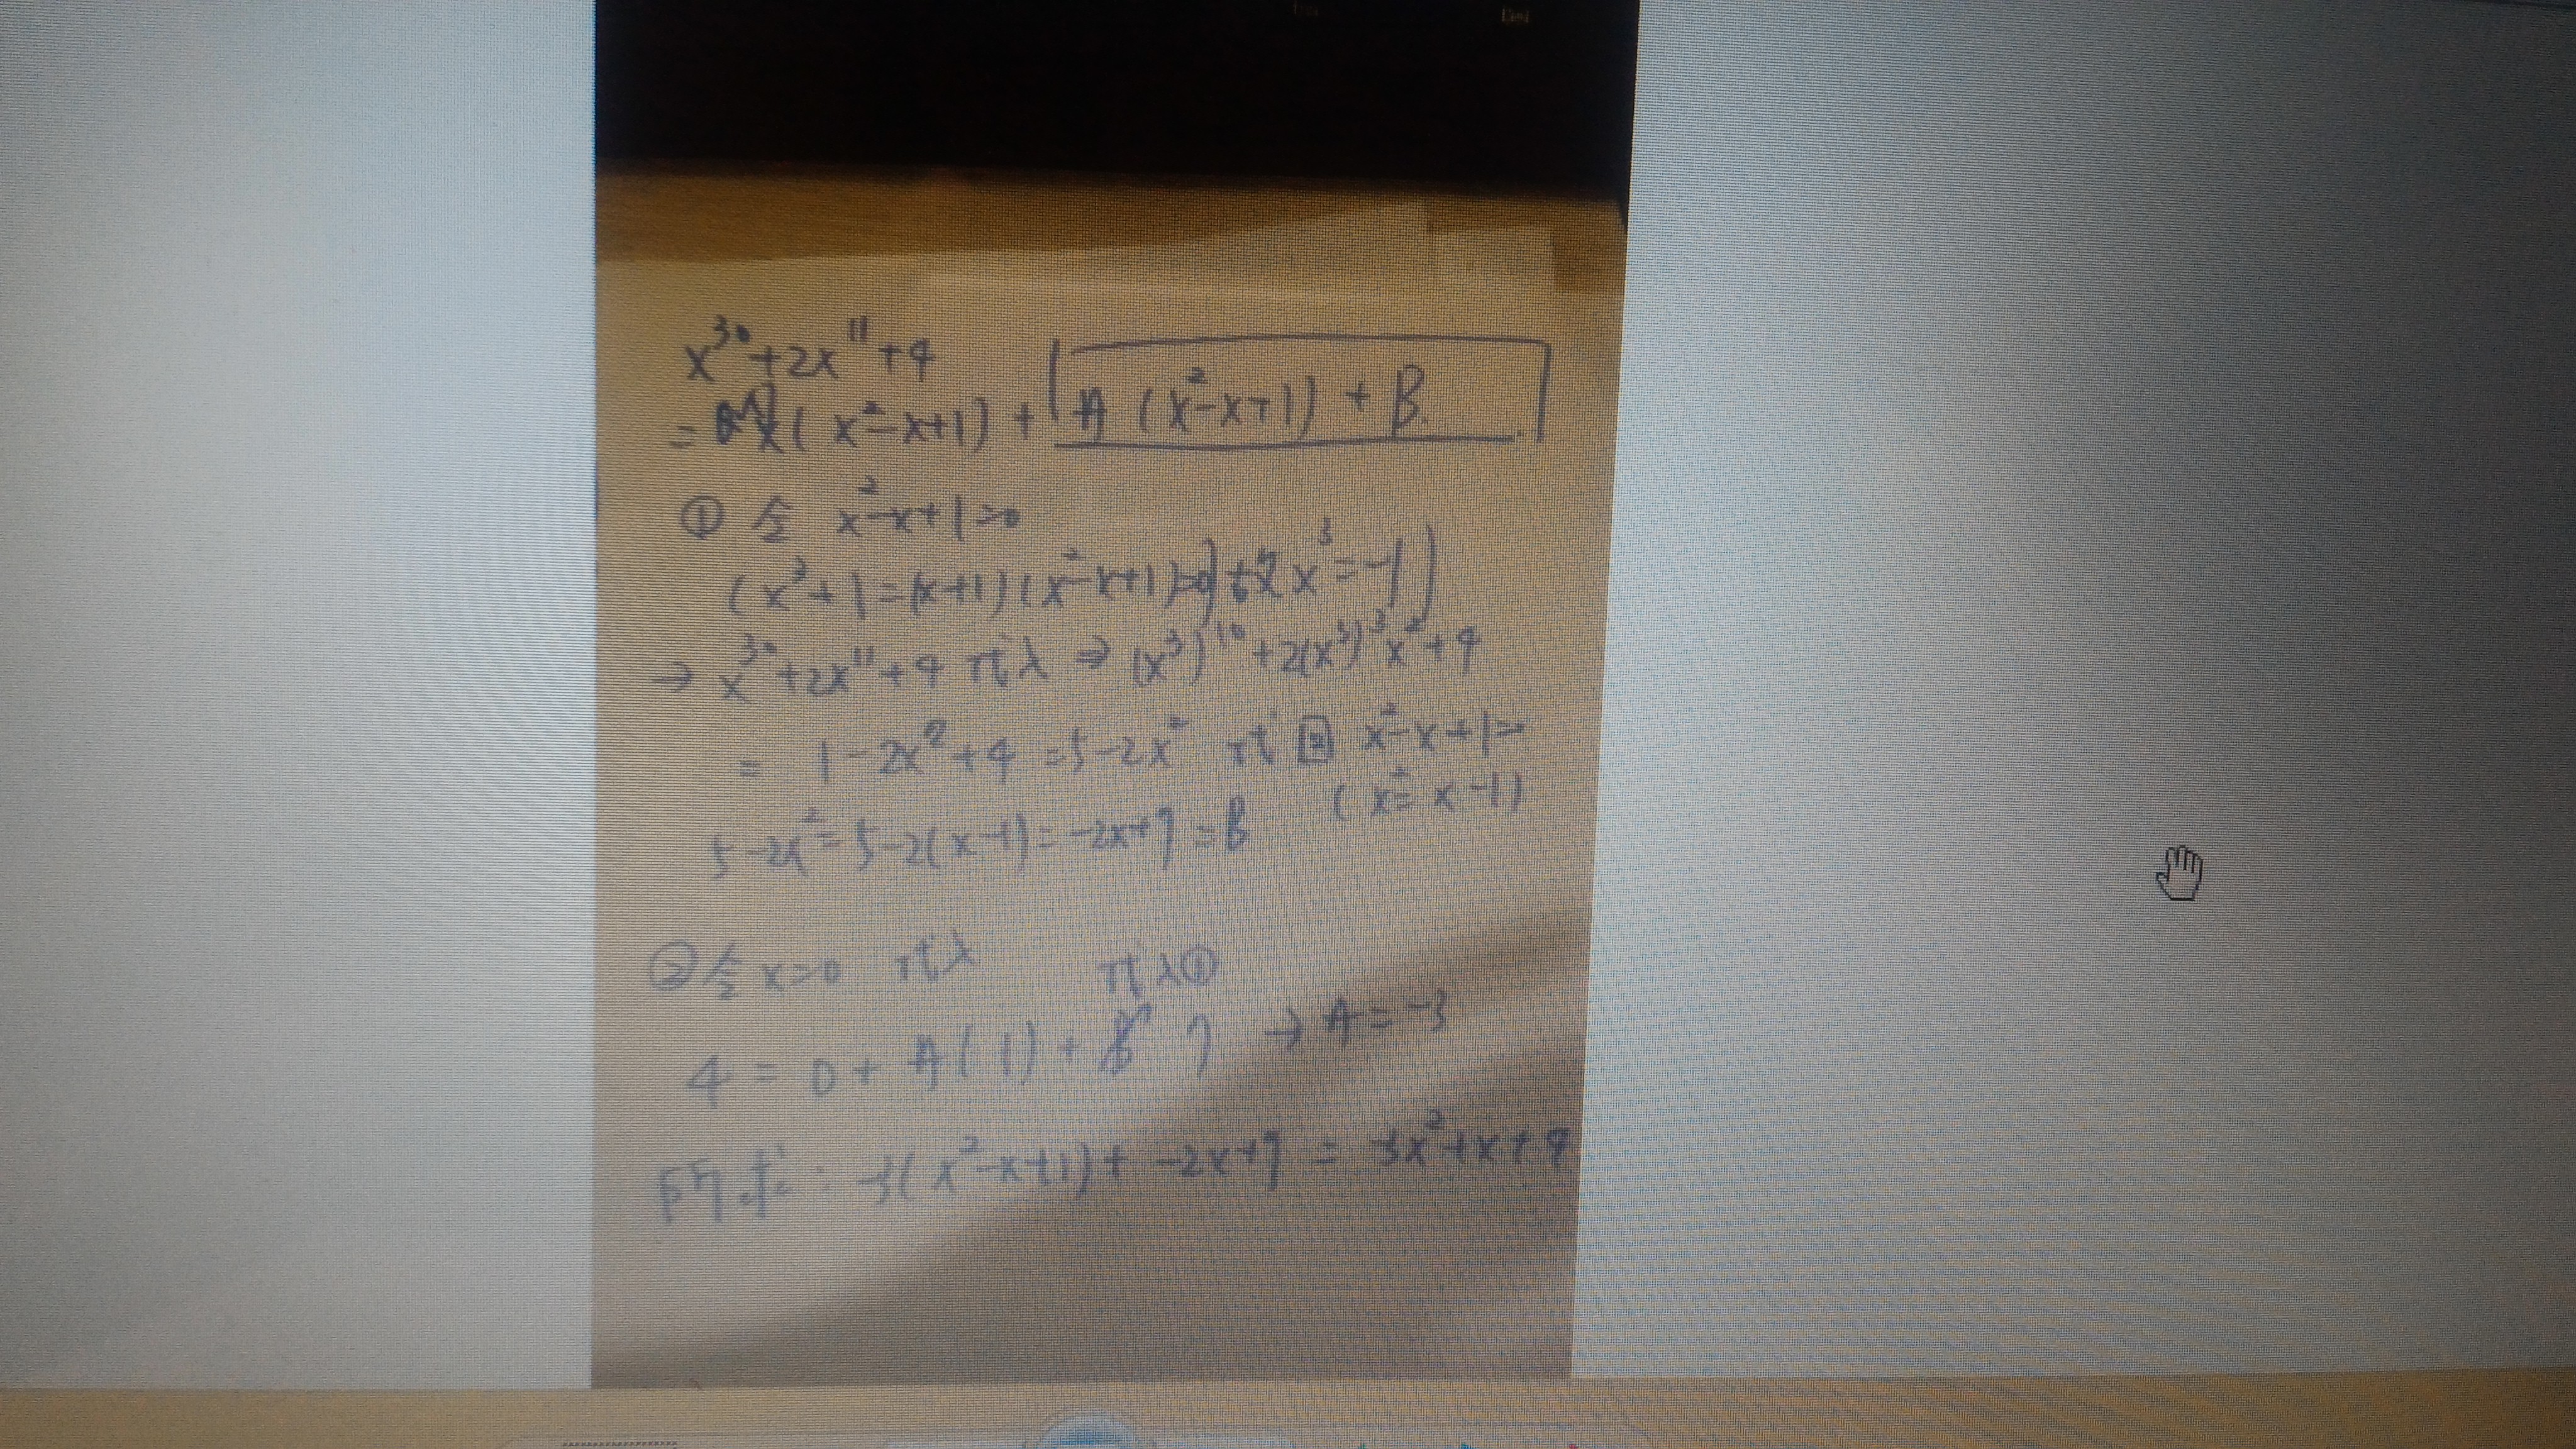 x³⁰+2x¹¹+4
= x(x²-x+1) + A(x²-x+1) + B
① 令 x²-x+1=0
(x³+1=(x+1)(x²-x+1)=0 x³=-1)
→ x³⁰+2x¹¹+4 代入 ⇒ (x³)¹⁰+2(x³)³x²+4
= 1-2x²+4 =5-2x² 代 回 x²-x+1=0
(x²=x-1)
5-2x²=5-2(x-1)=-2x+7=B
② 令 x=0 代入 代入①
4 = 0 + A(1) + 7 → A=-3
所求: -3(x²-x+1)+ -2x+7 = -3x²+x+4